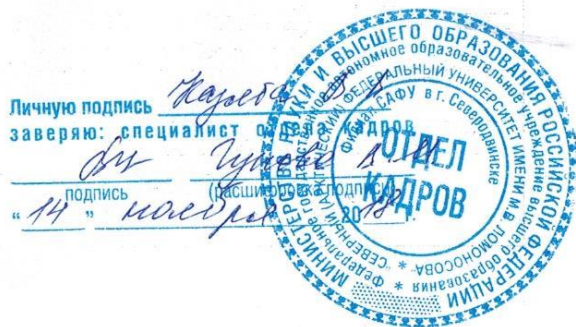 Личную подпись
заверяю: специалист отдела кадров
подпись (расшифровка подписи)
"14" ноября 2018
МИНИСТЕРСТВО НАУКИ И ВЫСШЕГО ОБРАЗОВАНИЯ РОССИЙСКОЙ ФЕДЕРАЦИИ
Федеральное государственное автономное образовательное учреждение высшего образования
"СЕВЕРНЫЙ (АРКТИЧЕСКИЙ) ФЕДЕРАЛЬНЫЙ УНИВЕРСИТЕТ ИМЕНИ М.В. ЛОМОНОСОВА"
филиал САФУ в г. Северодвинске
ОТДЕЛ
КАДРОВ